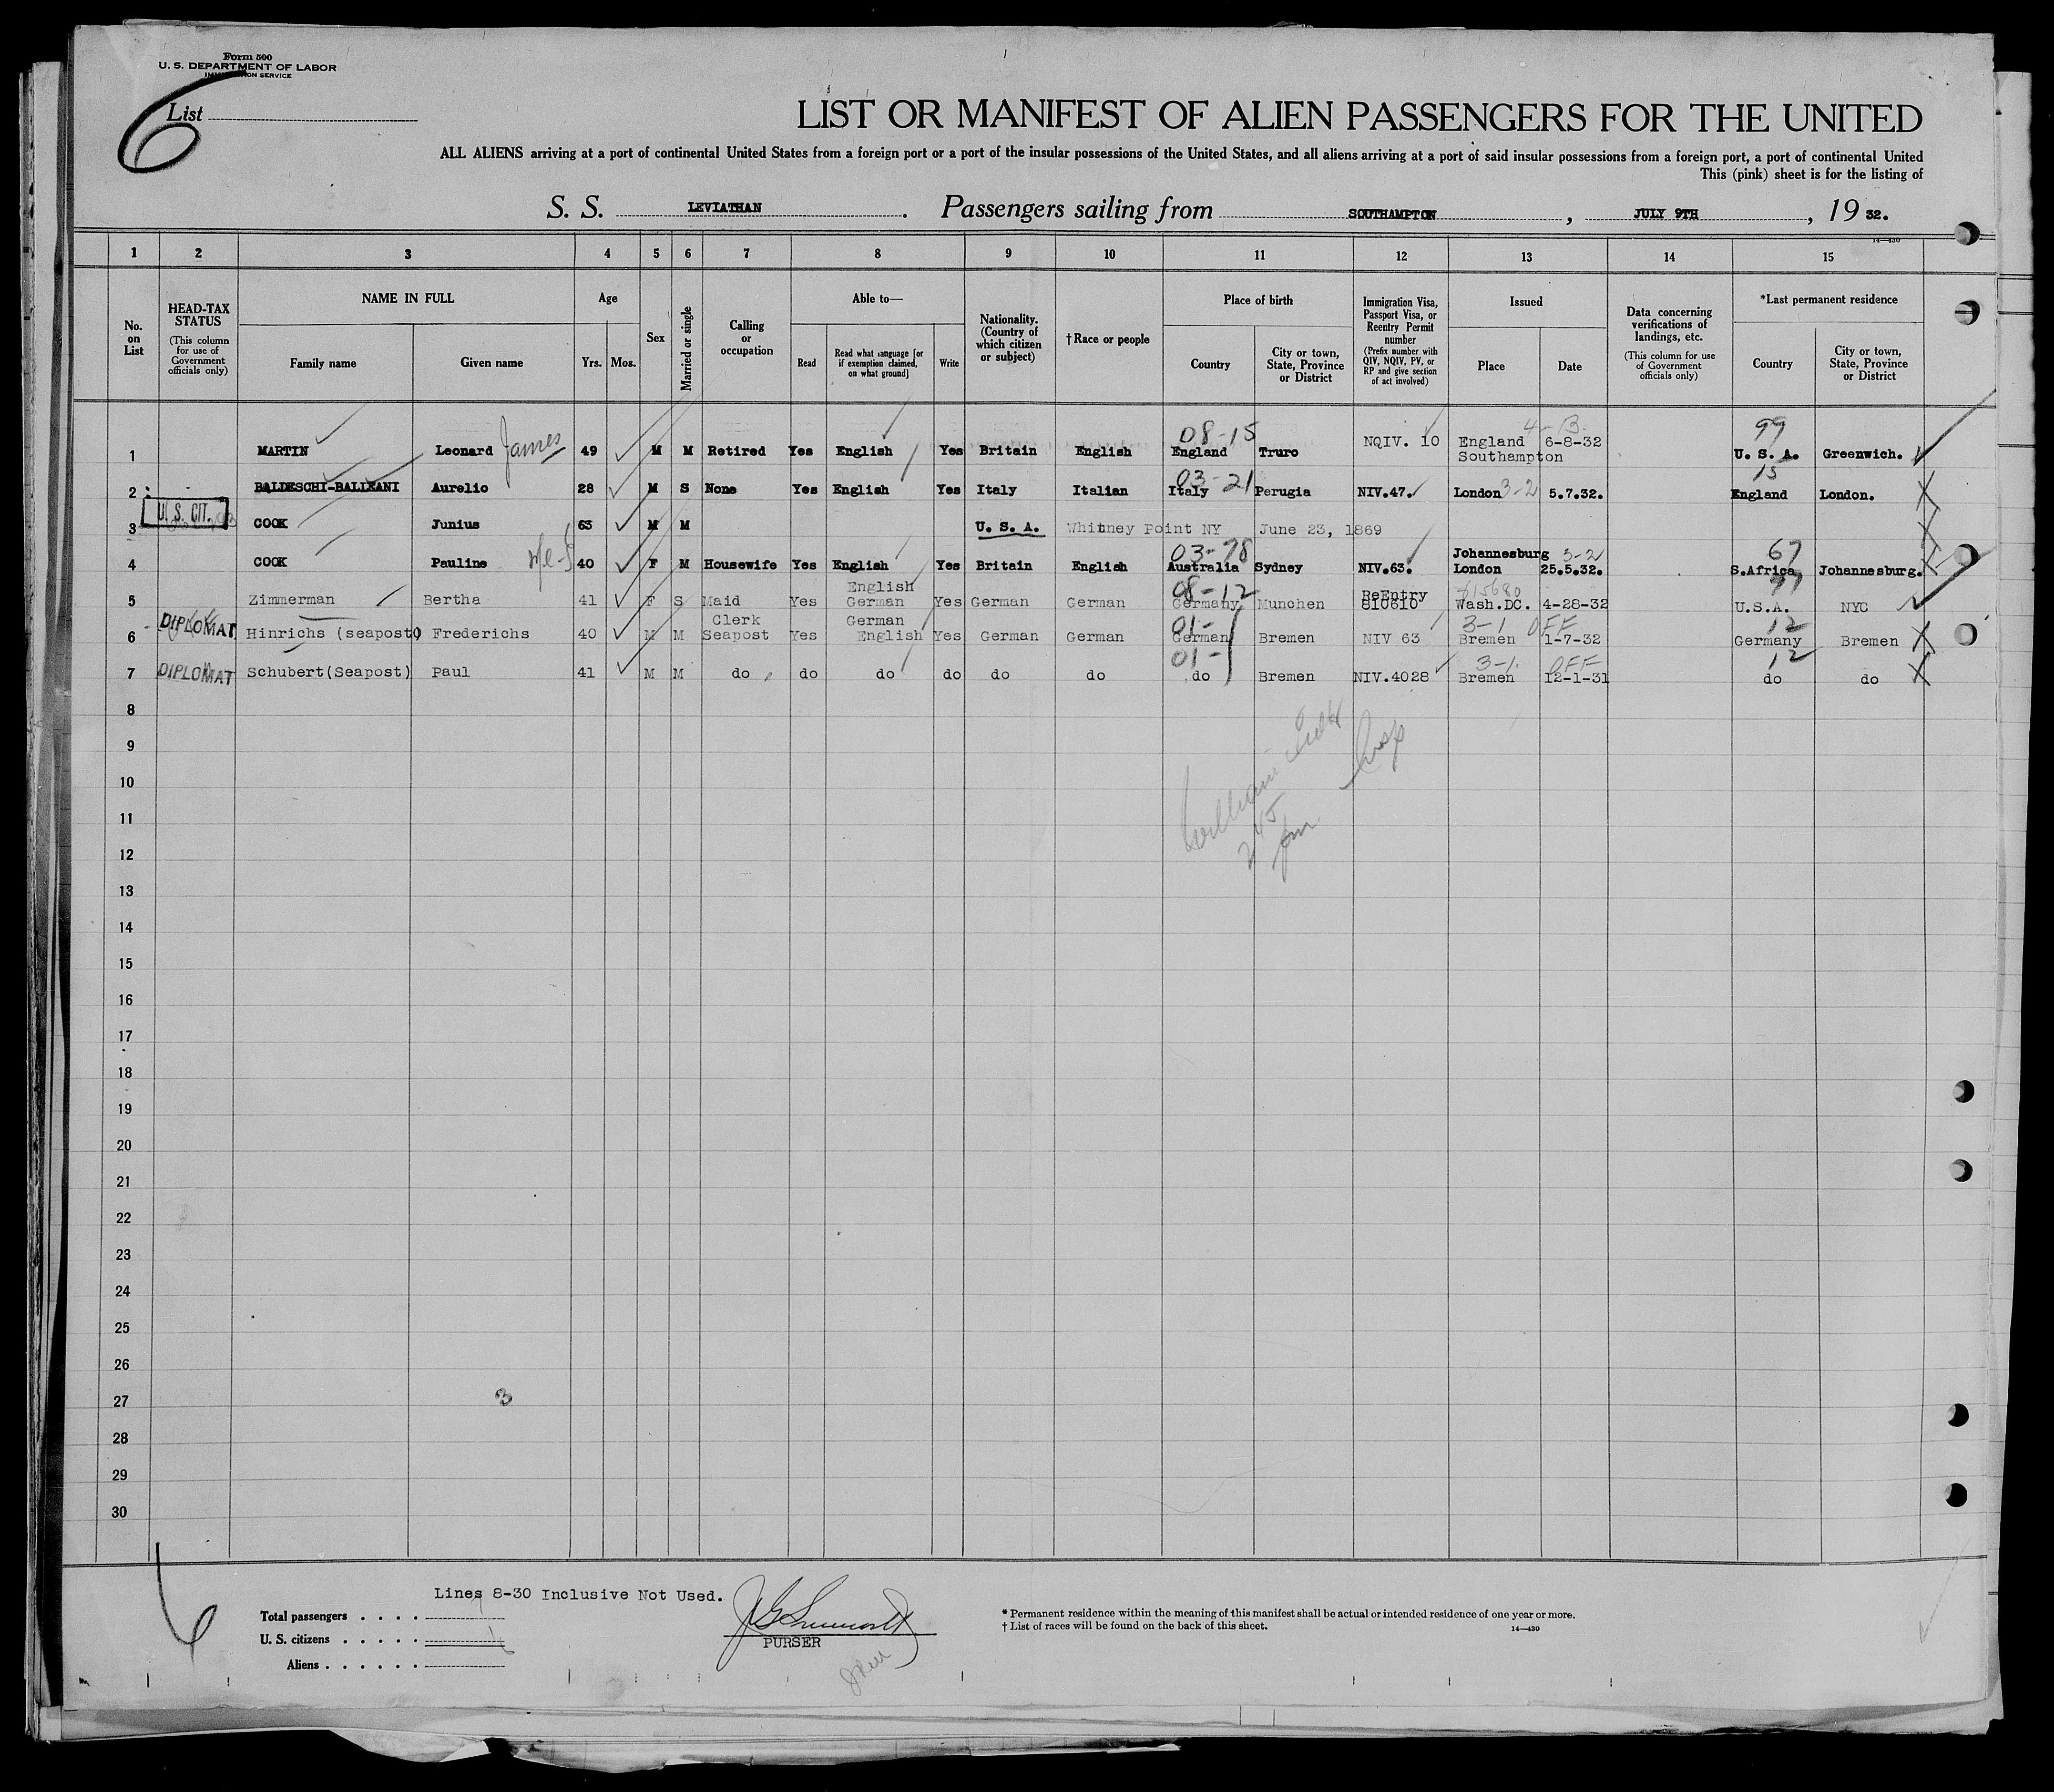 Form 500
U. S. DEPARTMENT OF LABOR
IMMIGRATION SERVICE
6
List
LIST OR MANIFEST OF ALIEN PASSENGERS FOR THE UNITED
ALL ALIENS arriving at a port of continental United States from a foreign port or a port of the insular possessions of the United States, and all aliens arriving at a port of said insular possessions from a foreign port, a port of continental United
This (pink) sheet is for the listing of
S. S. LEVIATHAN. Passengers sailing from SOUTHAMPTON, JULY 9TH, 19 32.
14—430
1 2 3 4 5 6 7 8 9 10 11 12 13 14 15
No. on List
HEAD-TAX STATUS (This column for use of Government officials only)
NAME IN FULL
Family name Given name
Age
Yrs. Mos.
Sex
Married or single
Calling or occupation
Able to—
Read
Read what language [or if exemption claimed, on what ground]
Write
Nationality. (Country of which citizen or subject)
†Race or people
Place of birth
Country
City or town, State, Province or District
Immigration Visa, Passport Visa, or Reentry Permit number (Prefix number with QIV, NQIV, PV, or RP and give section of act involved)
Issued
Place Date
Data concerning verifications of landings, etc. (This column for use of Government officials only)
*Last permanent residence
Country
City or town, State, Province or District
08-15 4-13. 99
1 MARTIN Leonard James 49 M M Retired Yes English Yes Britain English England Truro NQIV. 10 England Southampton 6-8-32 U. S. A. Greenwich.
03-21 3-2 15
2 BALDESCHI-BALLEANI Aurelio 28 M S None Yes English Yes Italy Italian Italy Perugia NIV.47. London 5.7.32. England London.
U. S. CIT.
3 COOK Junius 63 M M U. S. A. Whitney Point NY June 23, 1869
03-78 3-2 67
4 COOK Pauline 40 F M Housewife Yes English Yes Britain English Australia Sydney NIV.63. Johannesburg London 25.5.32. S.Africa Johannesburg.
08-12 99
5 Zimmerman Bertha 41 F S Maid Yes English German Yes German German Germany Munchen ReEntry 810610 Wash.DC. 4-28-32 U.S.A. NYC
01- 3-1 OFF 12
6 DIPLOMAT Hinrichs (seapost) Frederichs 40 M M Clerk Seapost Yes German English Yes German German German Bremen NIV 63 Bremen 1-7-32 Germany Bremen
01- 3-1. OFF 12
7 DIPLOMAT Schubert(Seapost) Paul 41 M M do do do do do do do Bremen NIV.4028 Bremen 12-1-31 do do
8
9
10
11
12
13
14
15
16
17
18
19
20
21
22
23
24
25
26
27
28
29
30
William
2 45
pm
3
6
Lines 8-30 Inclusive Not Used.
Total passengers . . . .
U. S. citizens . . . . .
Aliens . . . . . .
PURSER
* Permanent residence within the meaning of this manifest shall be actual or intended residence of one year or more.
† List of races will be found on the back of this sheet.
14—430